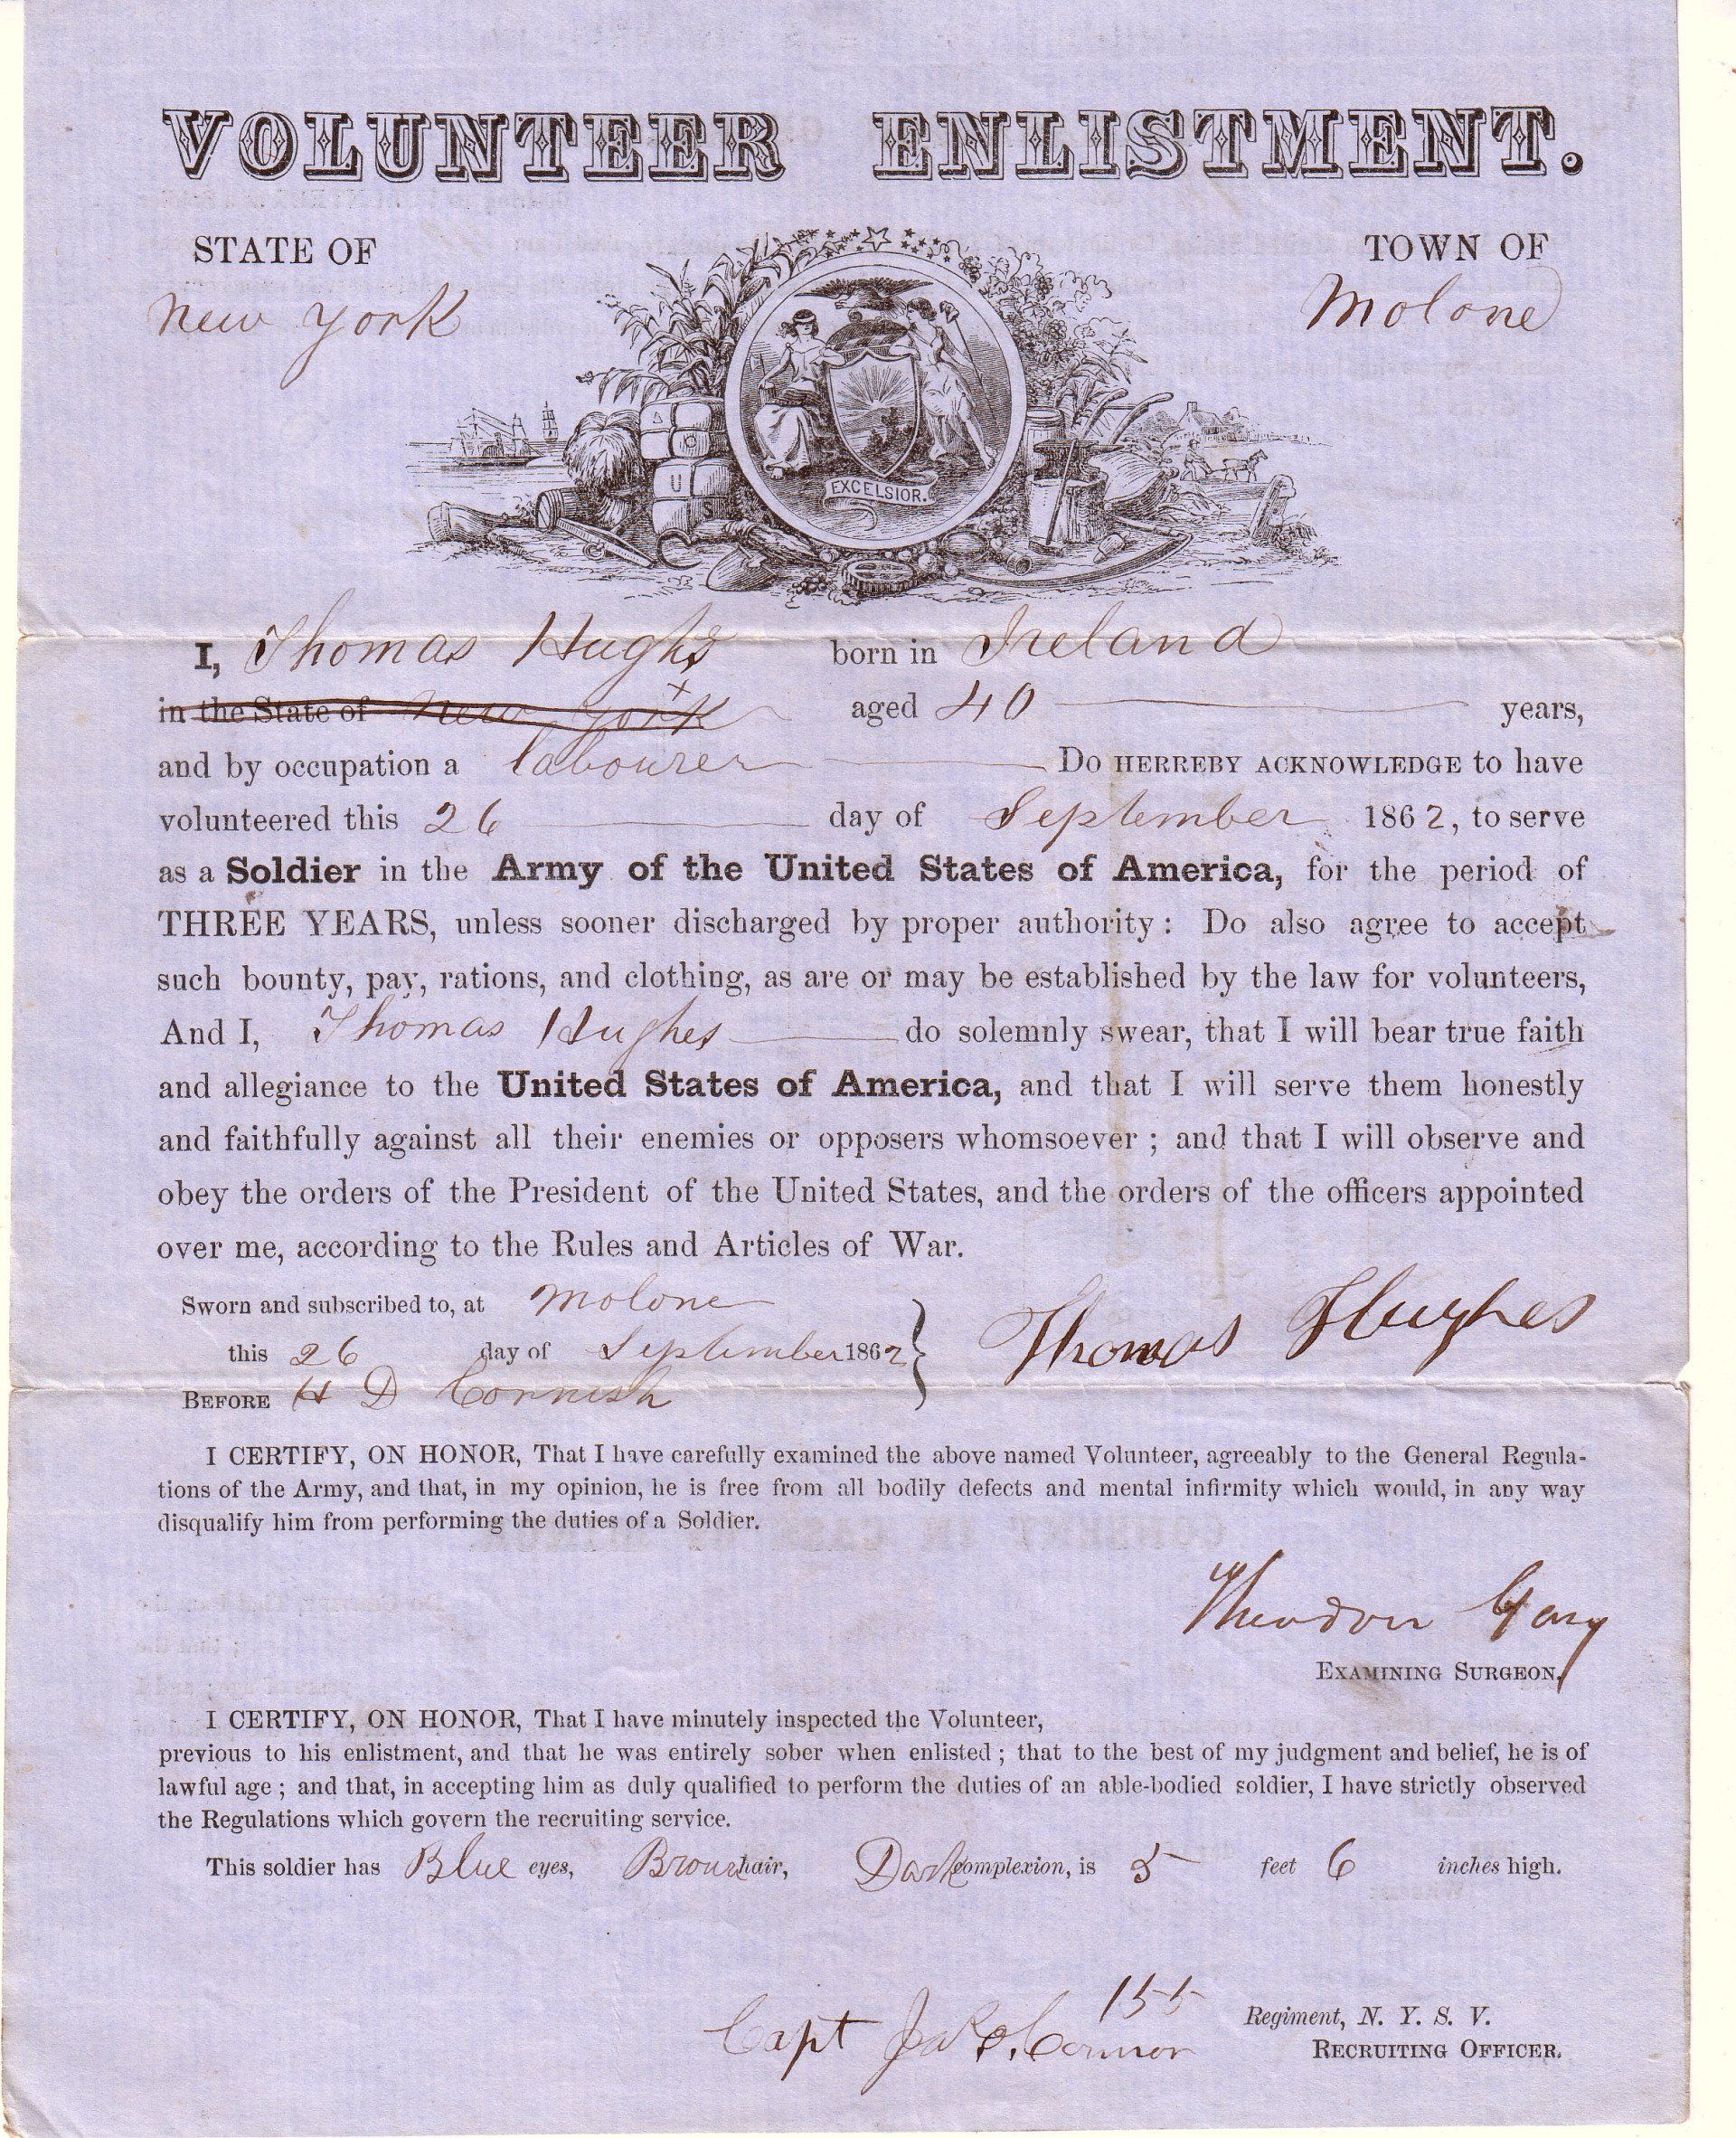 VOLUNTEER ENLISTMENT.
STATE OF
TOWN OF
New York
Molone
A
C
U
S
EXCELSIOR.
I, Thomas Hughs born in Ireland
in the State of New York aged 40 years,
and by occupation a labourer Do HERREBY ACKNOWLEDGE to have
volunteered this 26 day of September 1862, to serve
as a Soldier in the Army of the United States of America, for the period of
THREE YEARS, unless sooner discharged by proper authority: Do also agree to accept
such bounty, pay, rations, and clothing, as are or may be established by the law for volunteers,
And I, Thomas Hughes do solemnly swear, that I will bear true faith
and allegiance to the United States of America, and that I will serve them honestly
and faithfully against all their enemies or opposers whomsoever; and that I will observe and
obey the orders of the President of the United States, and the orders of the officers appointed
over me, according to the Rules and Articles of War.
Sworn and subscribed to, at Molone
this 26 day of September 1862
Thomas Hughes
BEFORE H D Cornish
I CERTIFY, ON HONOR, That I have carefully examined the above named Volunteer, agreeably to the General Regula-
tions of the Army, and that, in my opinion, he is free from all bodily defects and mental infirmity which would, in any way
disqualify him from performing the duties of a Soldier.
Theodore Gay
EXAMINING SURGEON,
I CERTIFY, ON HONOR, That I have minutely inspected the Volunteer,
previous to his enlistment, and that he was entirely sober when enlisted; that to the best of my judgment and belief, he is of
lawful age; and that, in accepting him as duly qualified to perform the duties of an able-bodied soldier, I have strictly observed
the Regulations which govern the recruiting service.
This soldier has Blue eyes, Brown hair, Dark complexion, is 5 feet 6 inches high.
155 Regiment, N. Y. S. V.
Capt Connor RECRUITING OFFICER.